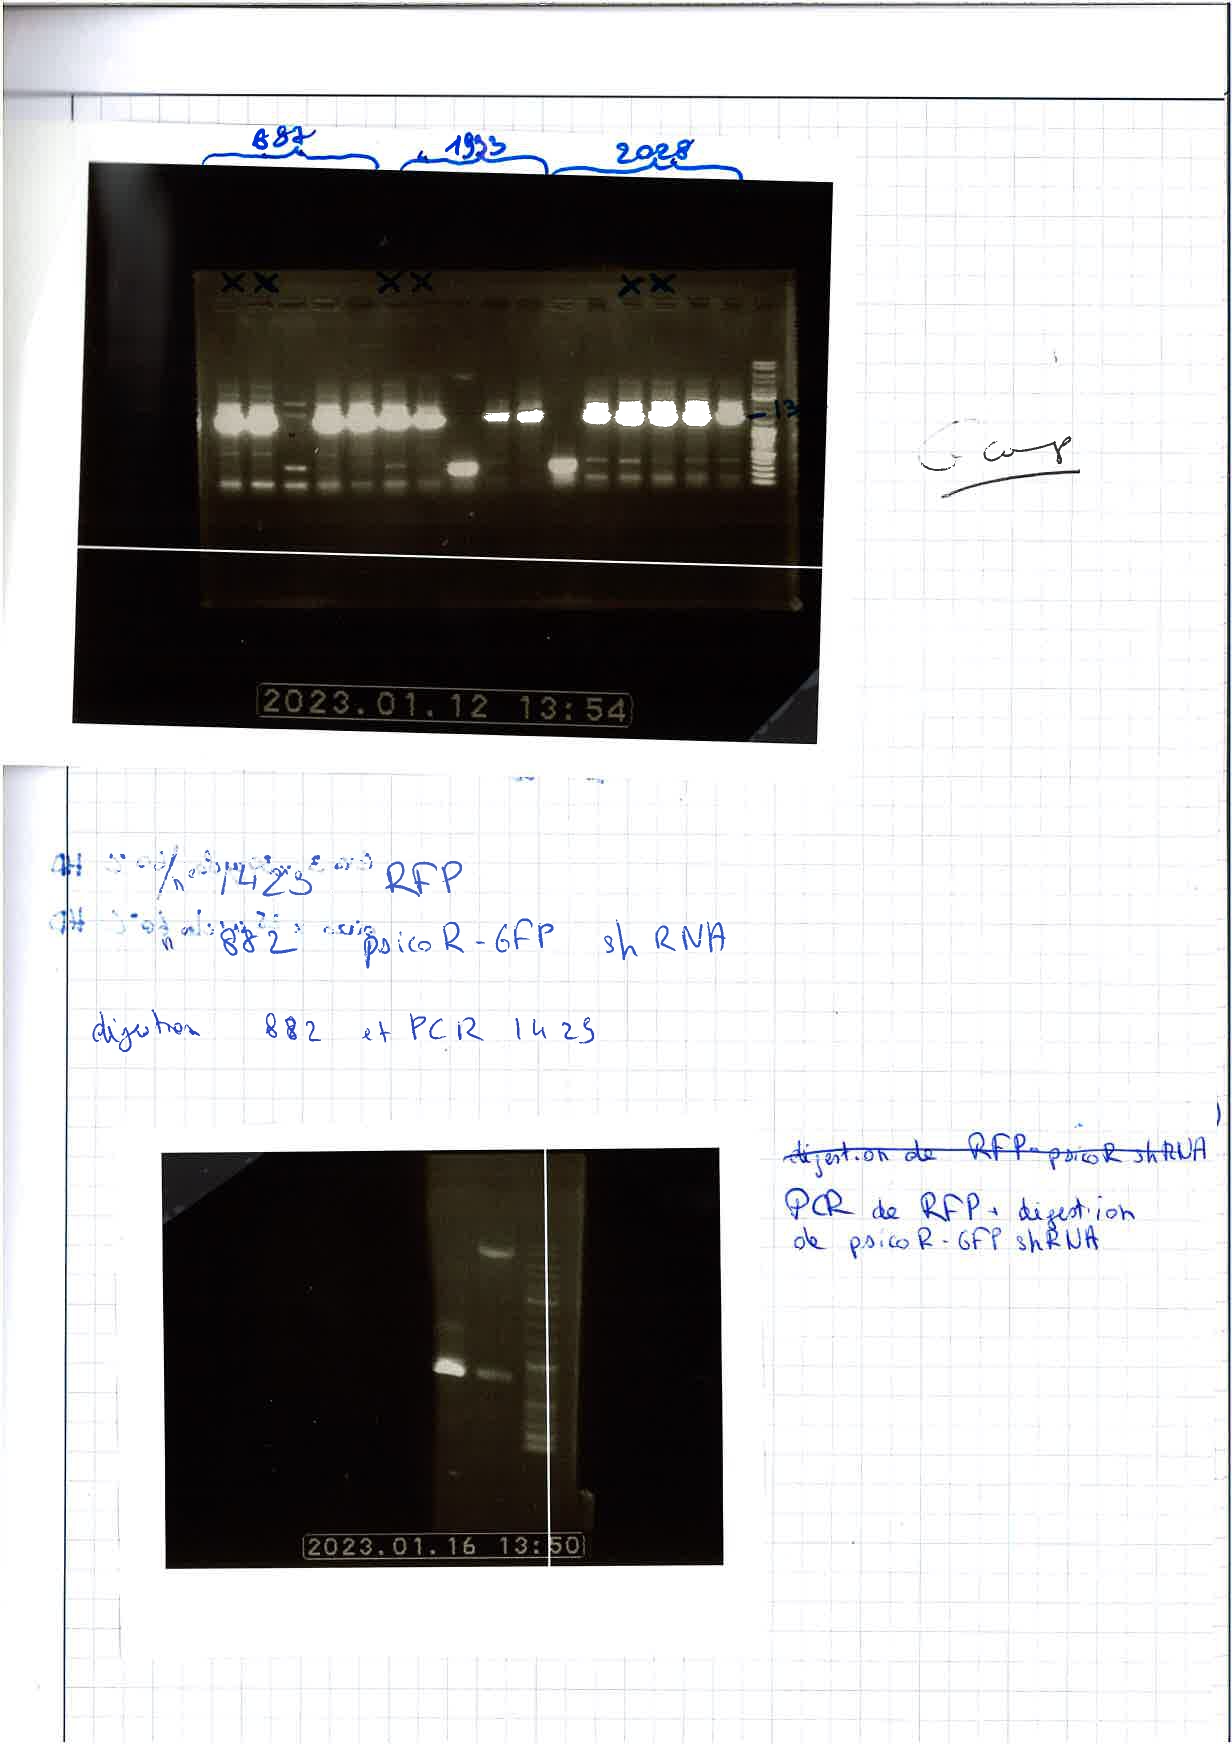 887 1933 2028
X X X X X X
- 13
2023.01.12 13:54
n° 1423 RFP
n 882 psicoR-GFP shRNA
digestion 882 et PCR 1423
digestion de RFP-psicoR shRNA
PCR de RFP + digestion
de psicoR-GFP shRNA
2023.01.16 13:50